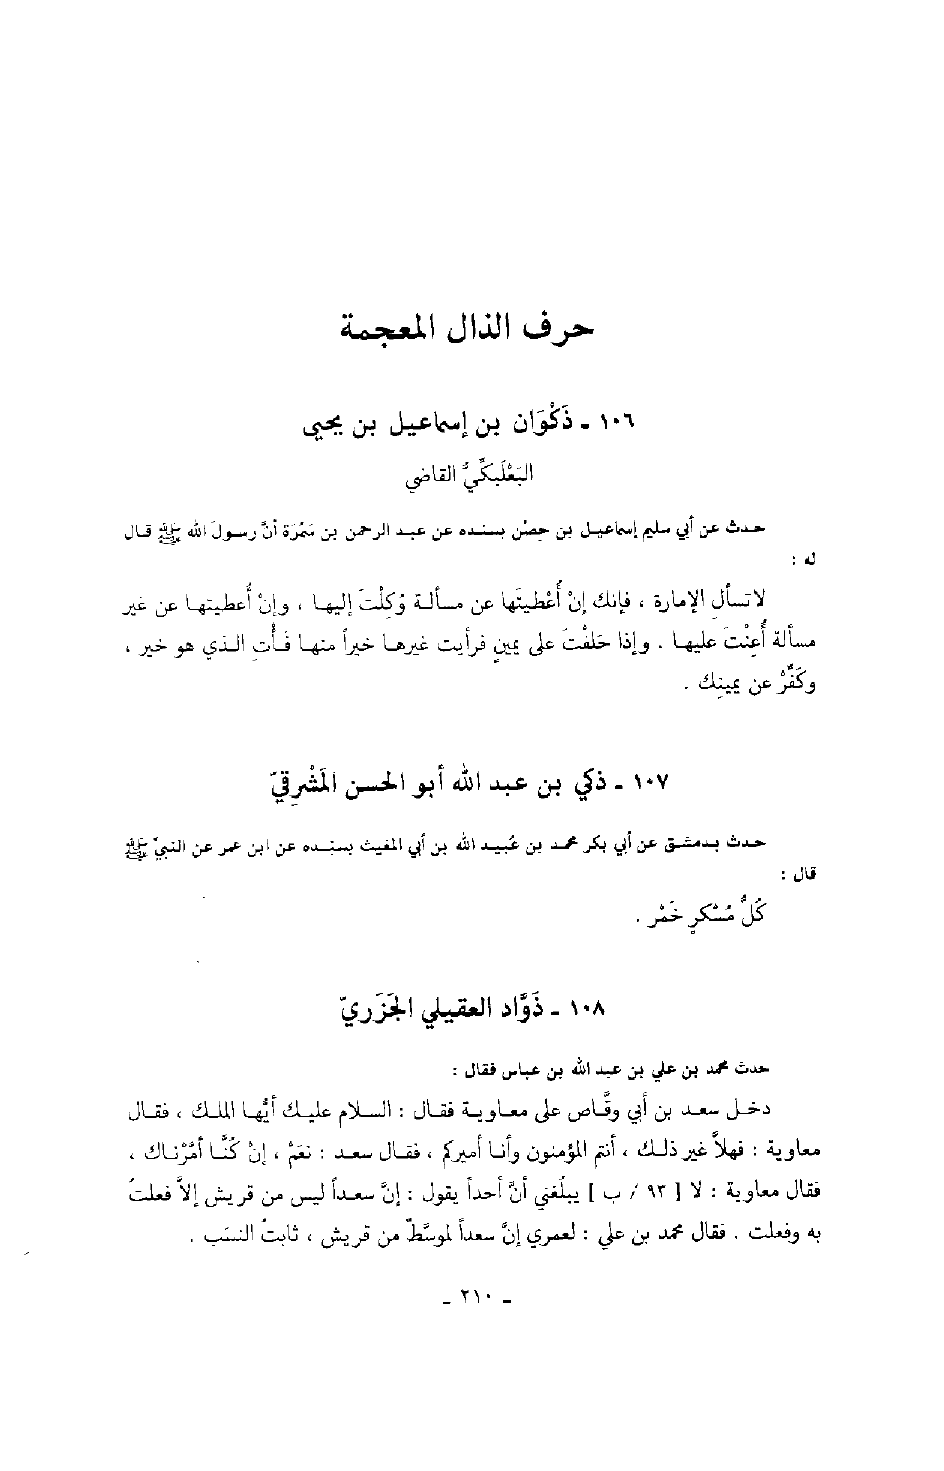 حرف الذال المعجمة
١٠٦ ـ ذَكْوَان بن إسماعيل بن يحيى
البَعْلَبَكِّيُّ القاضي
حدث عن أبي سليم إسماعيل بن حِصْن بسنده عن عبد الرحمن بن سَمُرَة أنَّ رسولَ الله ﷺ قال
له :
لا تسألِ الإمارة ، فإنك إنْ أُعْطيتَها عن مسألة وُكِلْتَ إليها ، وإنْ أُعطيتها عن غير
مسألة أُعِنْتَ عليها . وإذا حَلَفْتَ على يمينٍ فرأيت غيرها خيراً منها فَأْتِ الذي هو خير ،
وكَفِّرْ عن يمينِك .
١٠٧ ـ ذكي بن عبد الله أبو الحسن المَشْرِقيّ
حدث بدمشق عن أبي بكر محمد بن عُبيد الله بن أبي المغيث بسنده عن ابن عمر عن النبيّ ﷺ
قال :
كُلُّ مُسْكرٍ خَمْر .
١٠٨ ـ ذَوَّاد العقيلي الجَزَريّ
حدث محمد بن علي بن عبد الله بن عباس فقال :
دخل سعد بن أبي وقَّاص على معاوية فقال : السلام عليك أيُّها الملك ، فقال
معاوية : فهلاَّ غير ذلك ، أنتم المؤمنون وأنا أميركم ، فقال سعد : نعَمْ ، إنْ كُنَّا أمَّرْناك ،
فقال معاوية : لا [ ٩٣ / ب ] يبلُغني أنَّ أحداً يقول : إنَّ سعداً ليس من قريش إلاَّ فعلتُ
به وفعلت . فقال محمد بن علي : لعمري إنَّ سعداً لموسَّطٌ من قريش ، ثابتُ النسَب .
ـ ٢١٠ ـ